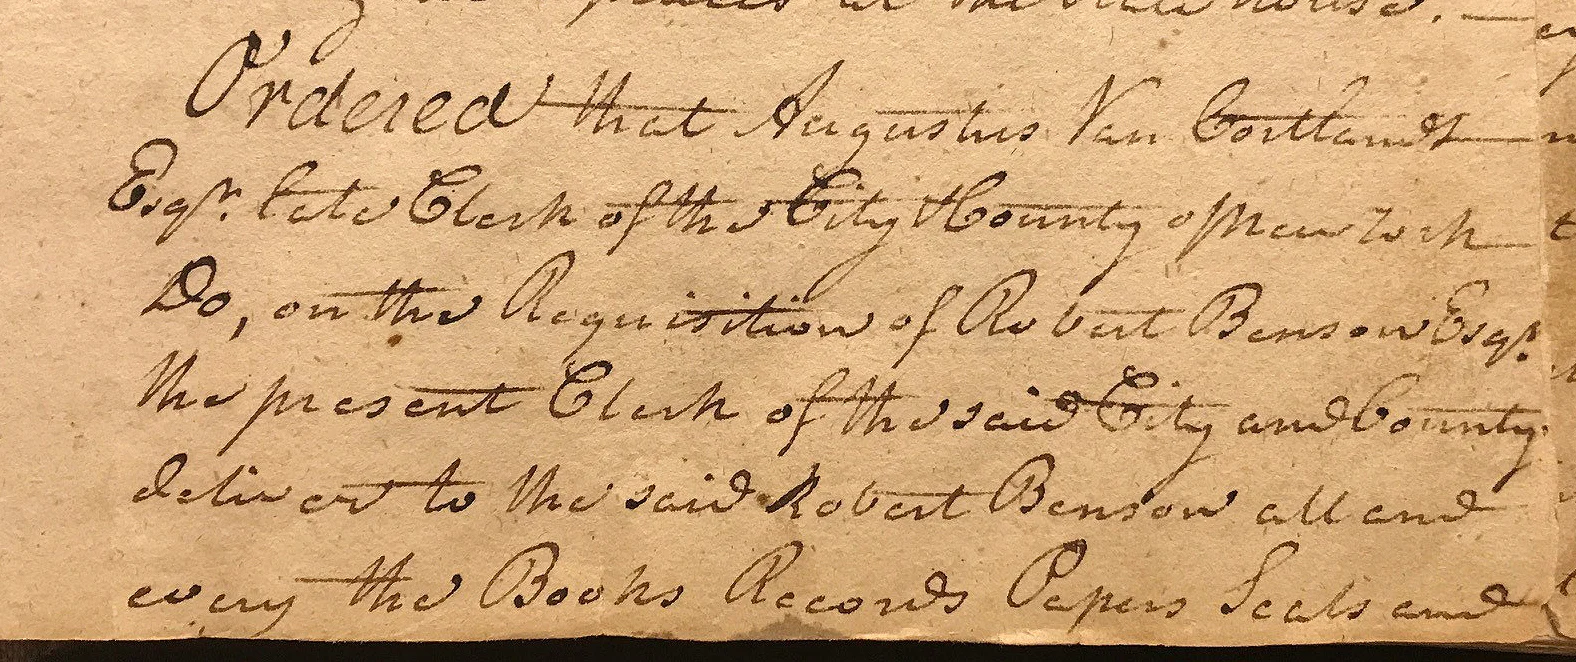 at the
Ordered that Augustus Van Cortlandt
Esqr. late Clerk of the City & County of New York
Do, on the Requisition of Robert Benson Esqr.
the present Clerk of the said City and County
deliver to the said Robert Benson all and
every the Books Records Papers Seals and